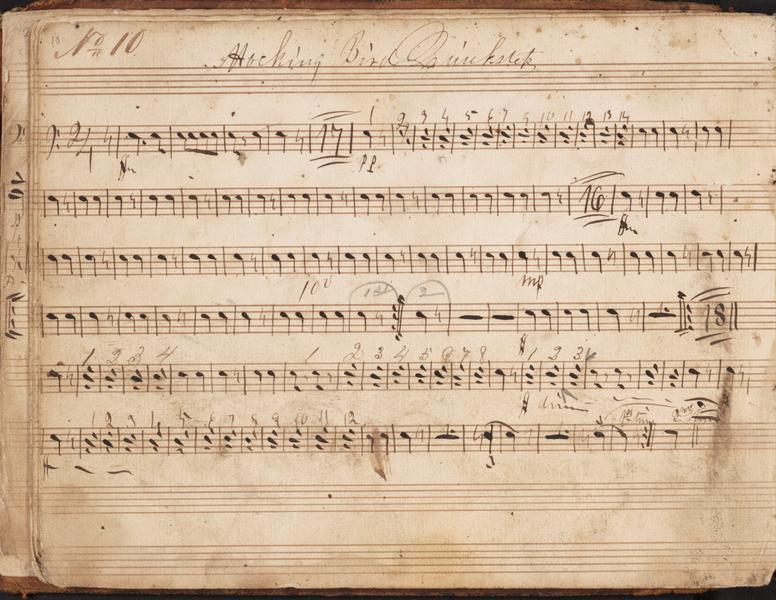 No 10
Mocking Bird Quickstep
2/4 17 1 2 3 4 5 6 7 8 9 10 11 12 13 14
pp
16
mp
1st 2
18
1 2 3 4 1 2 3 4 5 6 7 8 1 2 3
1 2 3 4 5 6 7 8 9 10 11 12